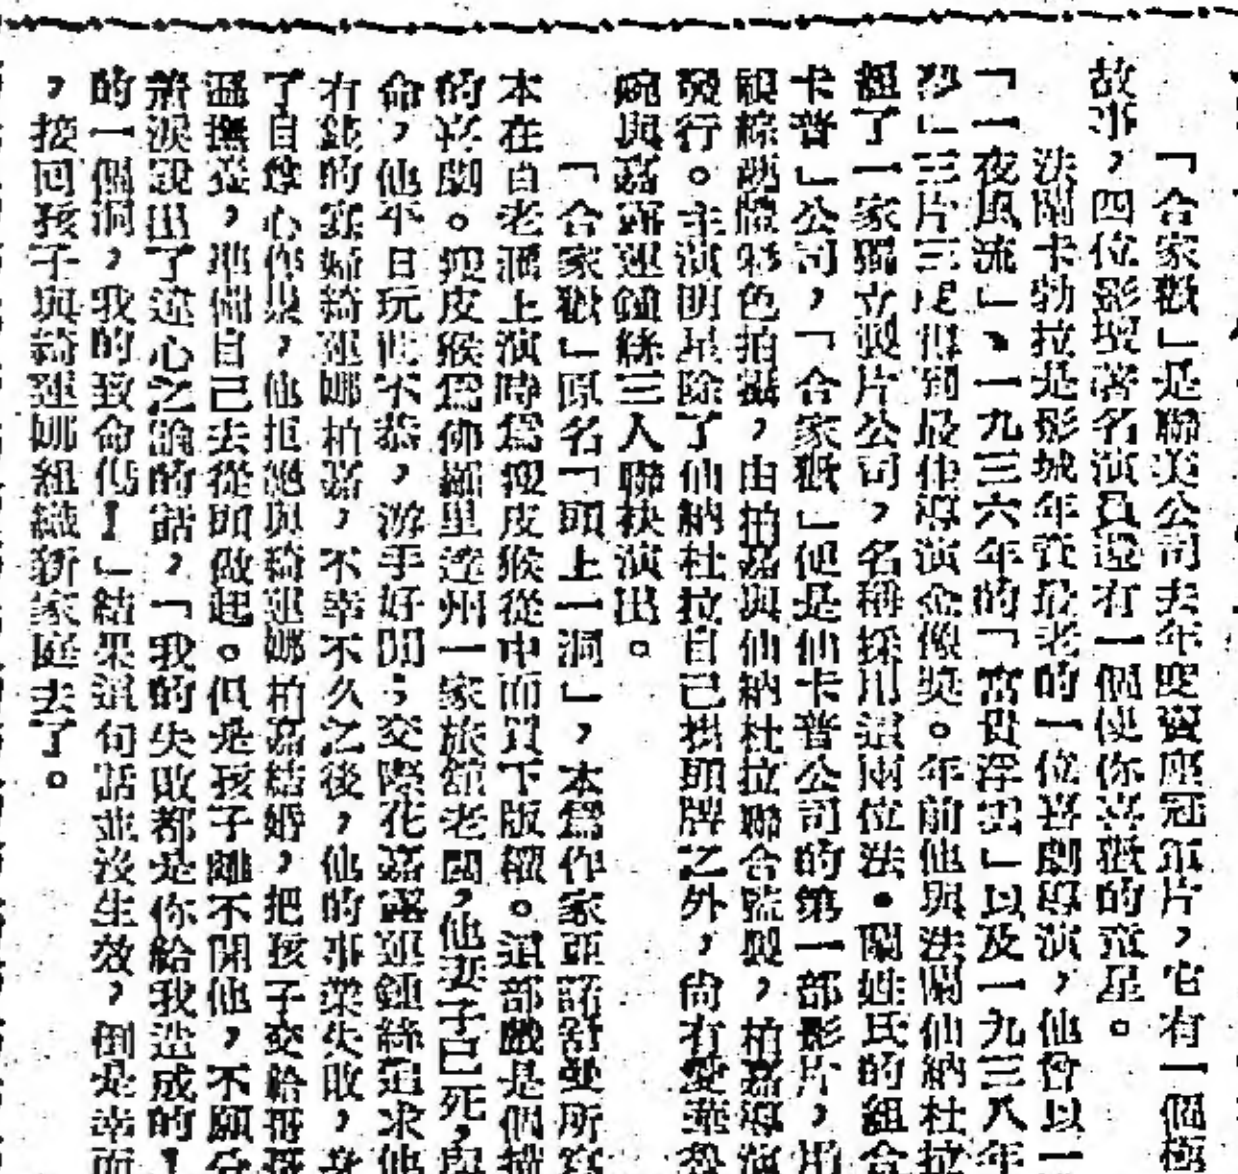 「合家歡」是聯美公司去年度賣座冠軍片，它有一個極
故事，四位影壇著名演員還有一個使你喜歡的童星。
法闌卡勃拉是影城年資最老的一位喜劇導演，他曾以一
「一夜風流」、一九三六年的「富貴浮雲」以及一九三八年
」三片三度得到最佳導演金像獎。年前他與法闌仙納杜拉
組了一家獨立製片公司，名稱採用這兩位法•闌姓氏的組合
卡普」公司，「合家歡」便是仙卡普公司的第一部影片，用
視綜藝體彩色拍攝，由柏嘉與仙納杜拉聯合監製，柏嘉導演
發行。主演明星除了仙納杜拉自己掛頭牌之外，尚有愛華
婉與嘉露連鍾絲三人聯袂演出。
「合家歡」原名「頭上一洞」，本為作家亞諾舒曼所寫
本在百老滙上演時為瘦皮猴從中而買下版權。這部戲是個描
的喜劇。瘦皮猴為佛羅里達州一家旅館老闆，他妻子已死，與
命，他平日玩世不恭，游手好閒；交際花嘉露連鍾絲追求他
有錢的寡婦綺連娜柏嘉，不幸不久之後，他的事業失敗，
了自尊心作祟，他拒絕與琦連娜柏嘉結婚，把孩子交給哥哥
溫撫養，準備自己去從頭做起。但是孩子離不開他，不願分
着淚說出了這心之論的話，「我的失敗都是你給我造成的！
的一個洞，我的致命傷！」結果這句話並沒生效，倒是幸而
，接回孩子與綺連娜組織新家庭去了。